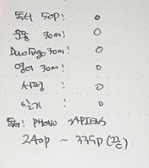 독서 50p: 0
운동 30m: 0
Duolingo 30m: 0
영어 30m: 0
서평 : 0
일기 : 0
독서: PHONO SAPIENS
240p ~ 335p (끝)